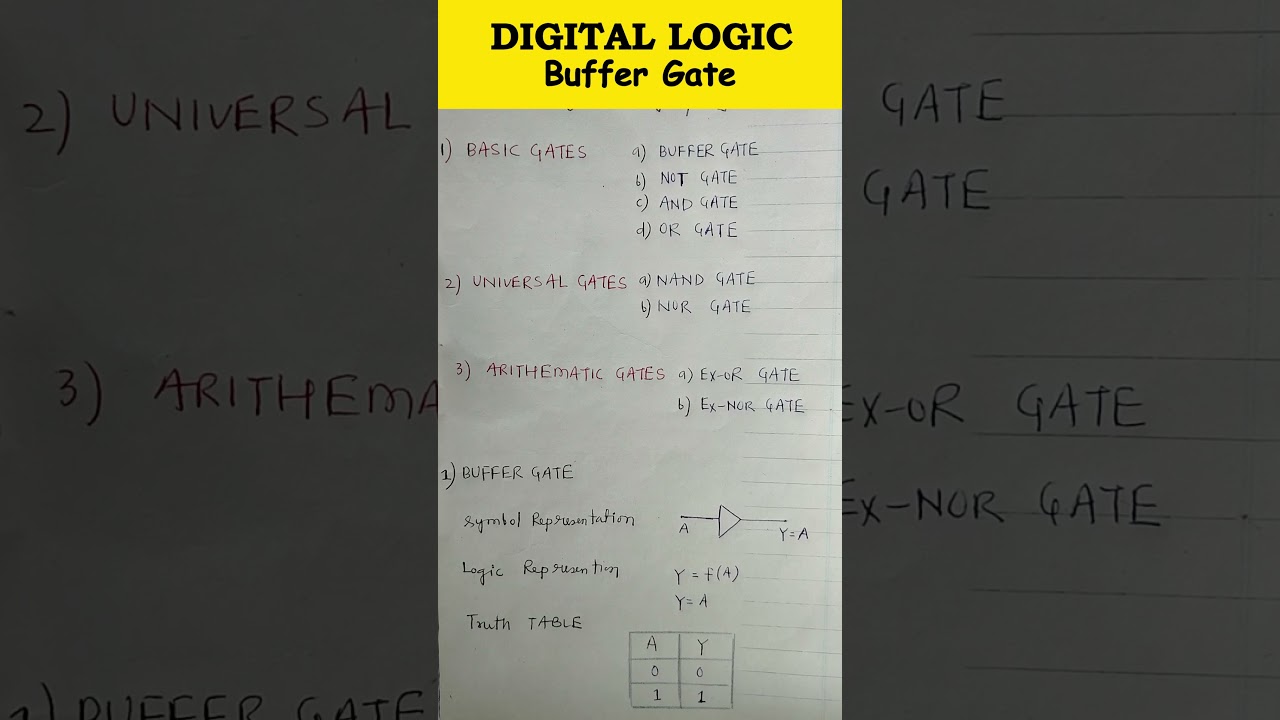 DIGITAL LOGIC
Buffer Gate
1) BASIC GATES a) BUFFER GATE
b) NOT GATE
c) AND GATE
d) OR GATE
2) UNIVERSAL GATES a) NAND GATE
b) NOR GATE
3) ARITHEMATIC GATES a) EX-OR GATE
b) EX-NOR GATE
1) BUFFER GATE
Symbol Representation A Y=A
Logic Represention Y = f(A)
Y = A
Truth TABLE
A Y
0 0
1 1
2) UNIVERSAL
3) ARITHEMA
1) BUFFER GATE
GATE
GATE
EX-OR GATE
EX-NOR GATE